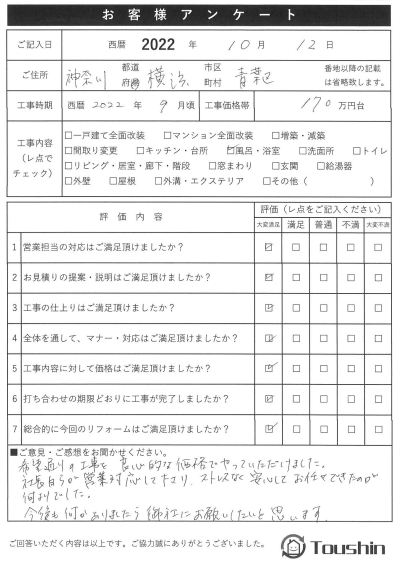 お客様アンケート
ご記入日 西暦 2022 年 10 月 12 日
ご住所 神奈川 都道府県 横浜 市区町村 青葉区 番地以降の記載は省略致します。
工事時期 西暦 2022 年 9 月頃 工事価格帯 170 万円台
工事内容(レ点でチェック)
□一戸建て全面改装 □マンション全面改装 □増築・減築
□間取り変更 □キッチン・台所 ☑風呂・浴室 □洗面所 □トイレ
□リビング・居室・廊下・階段 □窓まわり □玄関 □給湯器
□外壁 □屋根 □外溝・エクステリア □その他( )
評価内容 評価(レ点をご記入ください)
大変満足 満足 普通 不満 大変不満
1 営業担当の対応はご満足頂けましたか? ☑ □ □ □ □
2 お見積りの提案・説明はご満足頂けましたか? ☑ □ □ □ □
3 工事の仕上りはご満足頂けましたか? ☑ □ □ □ □
4 全体を通して、マナー・対応はご満足頂けましたか? ☑ □ □ □ □
5 工事内容に対して価格はご満足頂けましたか? ☑ □ □ □ □
6 打ち合わせの期限どおりに工事が完了しましたか? ☑ □ □ □ □
7 総合的に今回のリフォームはご満足頂けましたか? ☑ □ □ □ □
■ご意見・ご感想をお聞かせください。
希望通りの工事を良心的な価格でやっていただけました。
社長自らが営業対応して下さり、ストレスなく安心してお任せできたのが
何よりでした。
今後も何かありましたら御社にお願いしたいと思います。
ご回答いただく内容は以上です。ご協力誠にありがとうございました。
Toushin